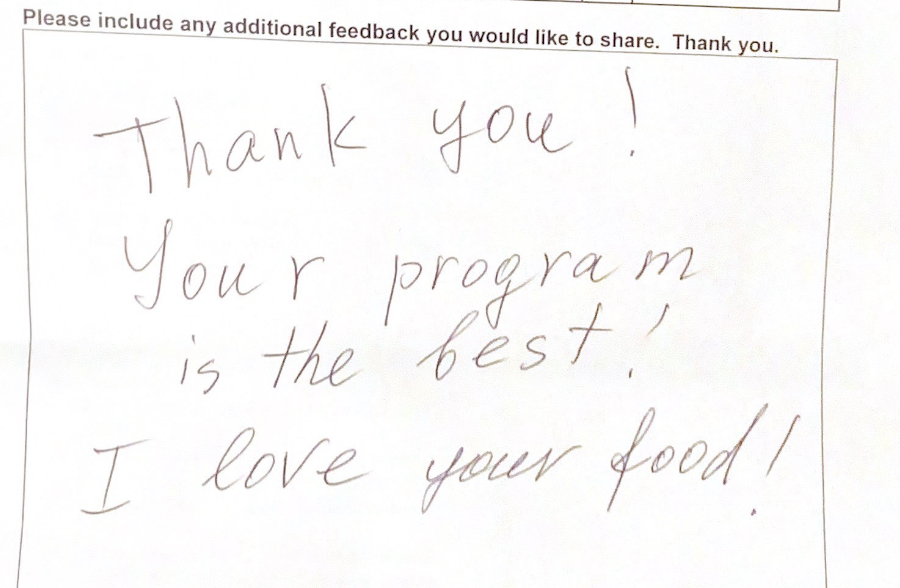 Please include any additional feedback you would like to share. Thank you.
Thank you!
Your program
is the best!
I love your food!